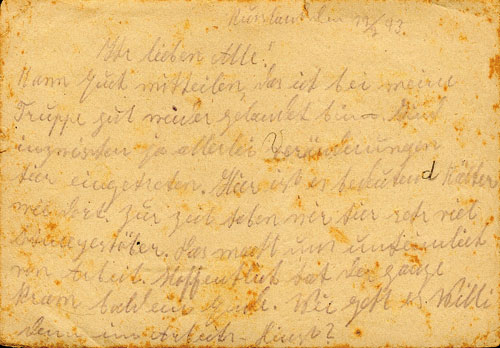 Russland den 13/2 43
Ihr lieben Alle!
Kann Euch mitteilen, das ich bei meine
Truppe gut wieder gelandet bin. Sind
inzwischen ja allerlei Veränderungen
hier eingetreten. Hier ist es bedeutend kälter
wie dort. Zur zeit haben wir hier sehr viel
Schneegestöber. Das macht uns unheimlich
vor Arbeit. Hoffentlich hat der ganze
Kram bald ein Ende. Wie geht es Willi
denn im Arbeits-dienst?